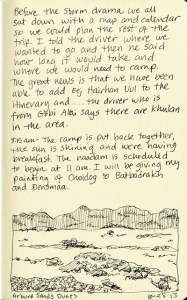 Before the storm drama we all
sat down with a map and calendar
so we could plan the rest of the
trip. I told the driver where we
wanted to go and then he said
how long it would take and
where we would need to camp.
The great news is that we have been
able to add Ej Hairhan Uul to the
itinerary and .... the driver who is
from Gobi Altai says there are khulan
in the area.
7:15 am - The camp is put back together,
the sun is shining and we're having
breakfast. The naadam is scheduled
to begin at 11 am. I will be giving my
painting of Choidog to Batbadrakh
and Densmaa.
Around Sands Dunes
8-25-13